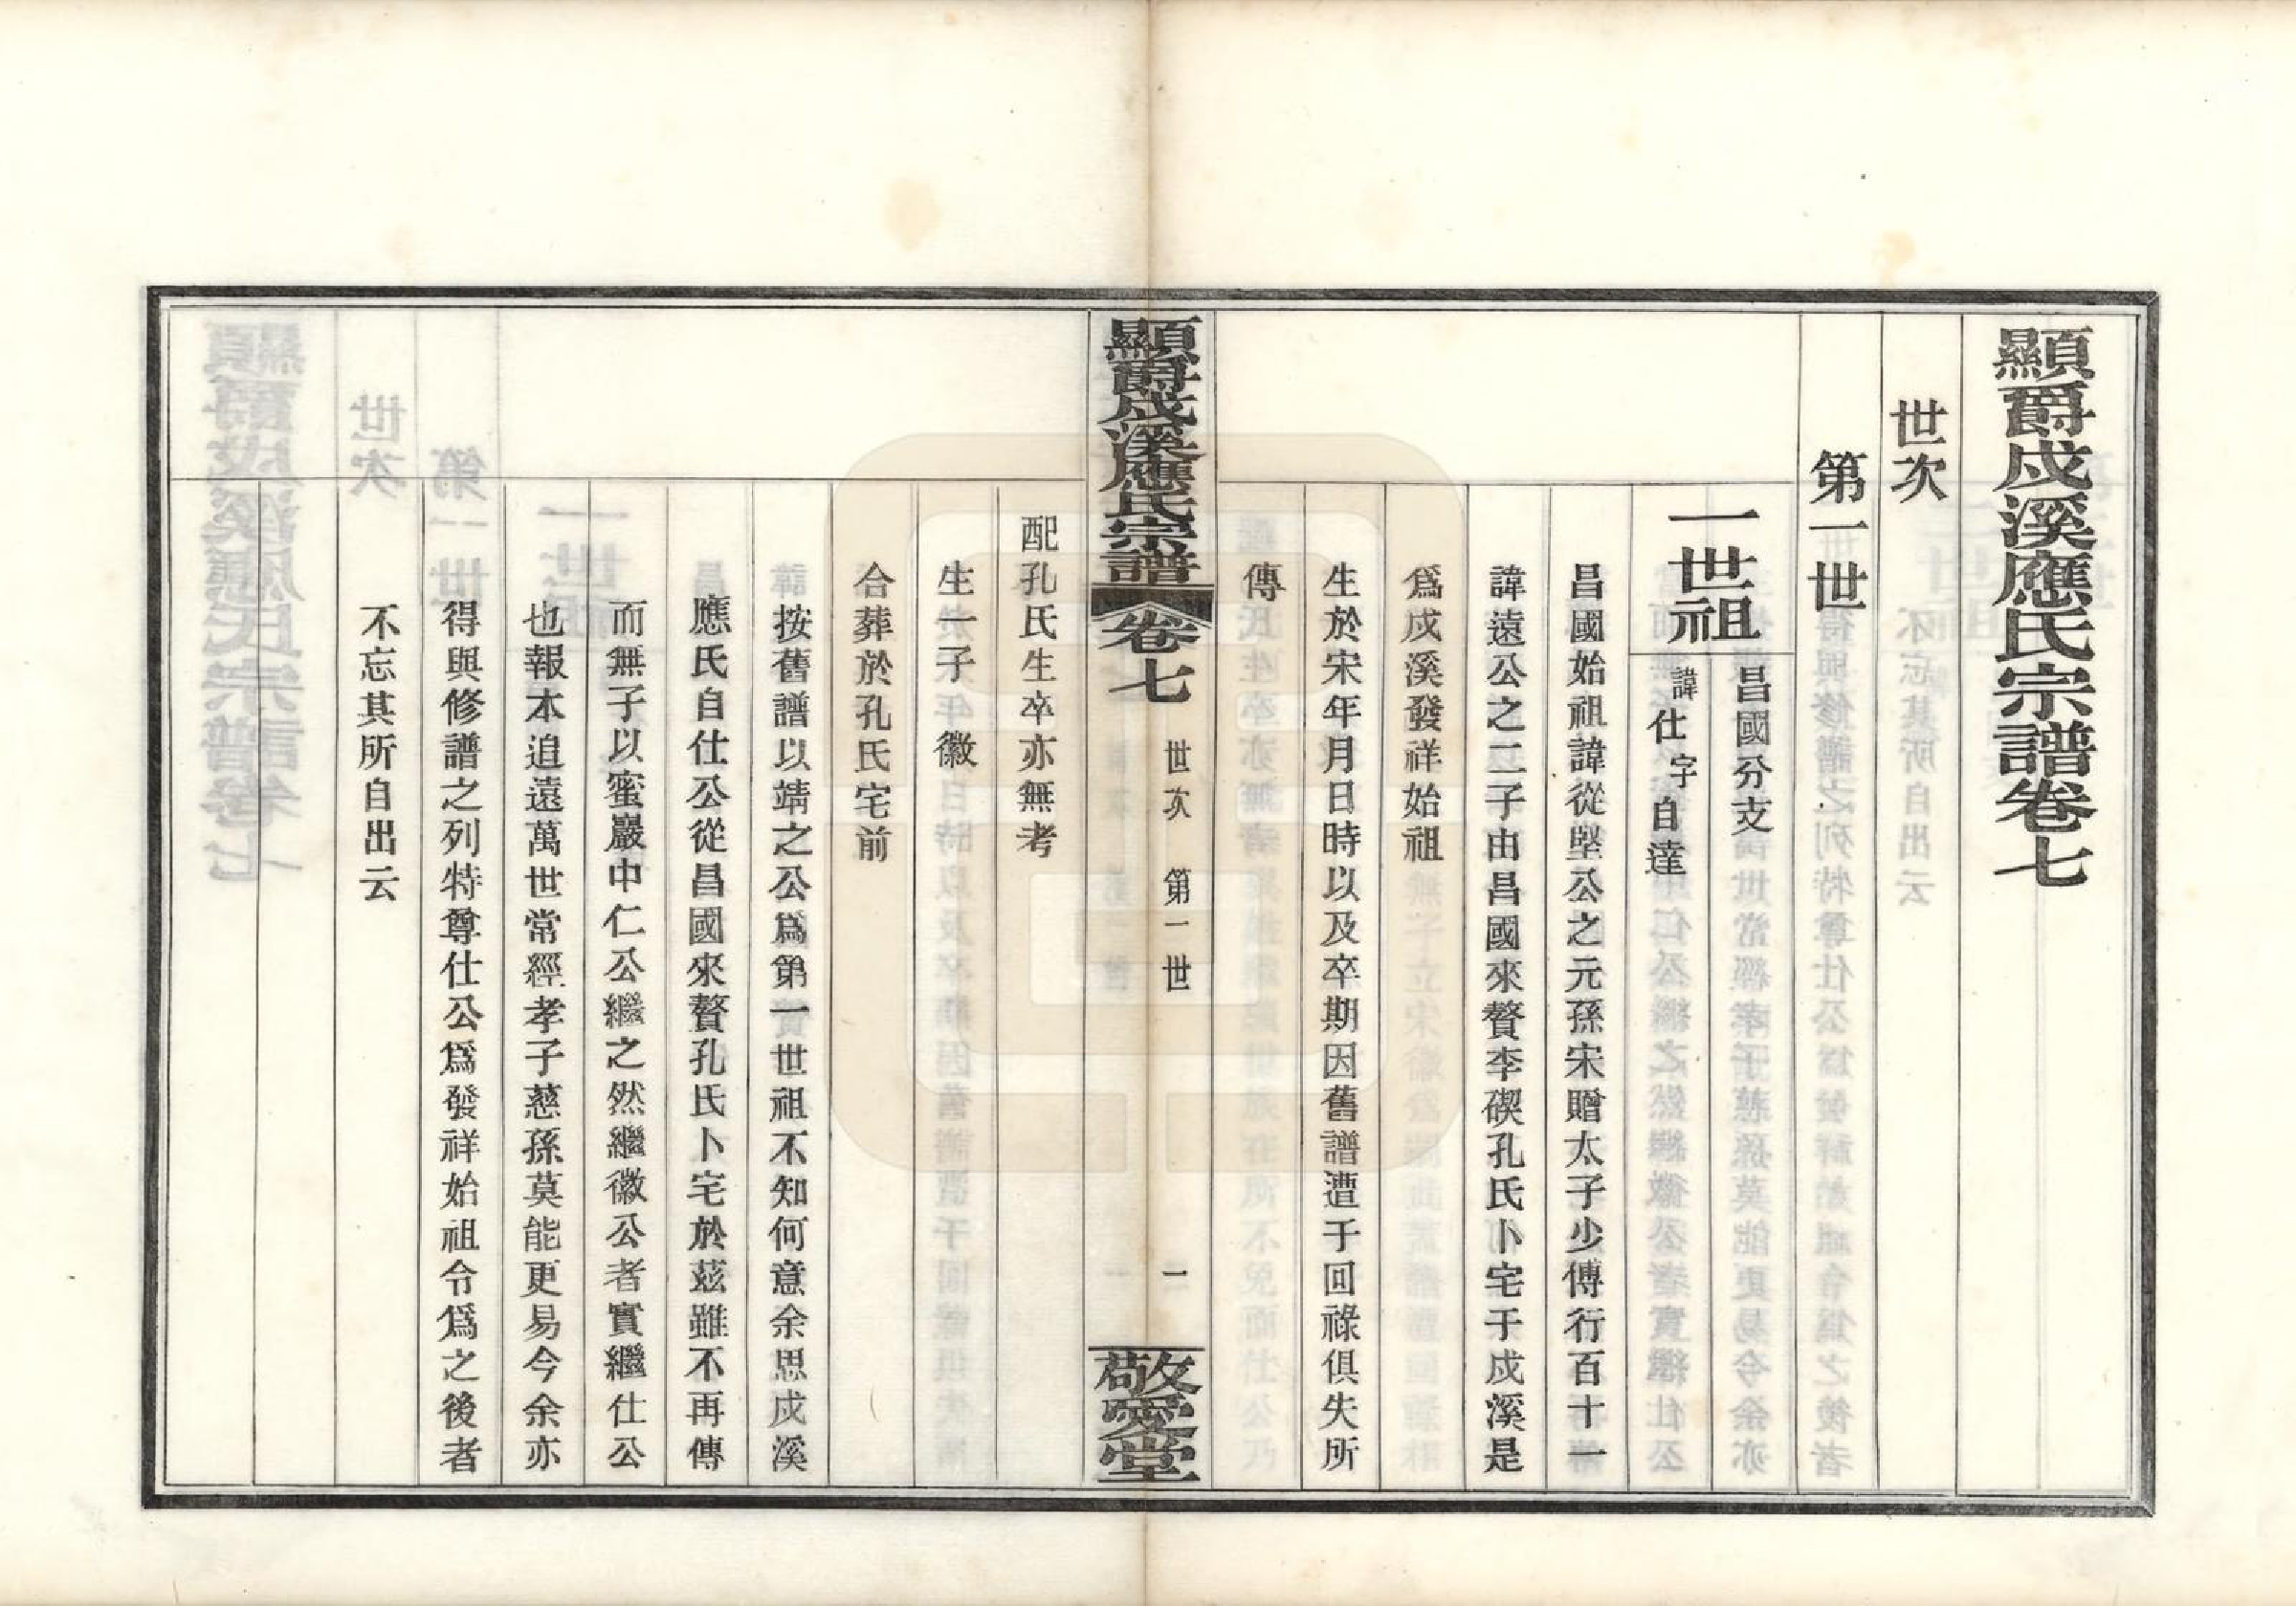 顯爵戍溪應氏宗譜卷七
世次
第一世
一世祖
昌國分支
諱仕字自達
昌國始祖諱從㘴公之元孫宋贈太子少傅行百十一
諱遠公之二子由昌國來贅李碶孔氏卜宅于戍溪是
爲戍溪發祥始祖
生於宋年月日時以及卒期因舊譜遭于回祿俱失所
傳
顯爵戍溪應氏宗譜
卷七
世次 第一世
一
敬愛堂
配孔氏生卒亦無考
生一子徽
合葬於孔氏宅前
按舊譜以靖之公爲第一世祖不知何意余思戍溪
應氏自仕公從昌國來贅孔氏卜宅於茲雖不再傳
而無子以蜜巖中仁公繼之然繼徽公者實繼仕公
也報本追遠萬世常經孝子慈孫莫能更易今余亦
得與修譜之列特尊仕公爲發祥始祖令爲之後者
不忘其所自出云